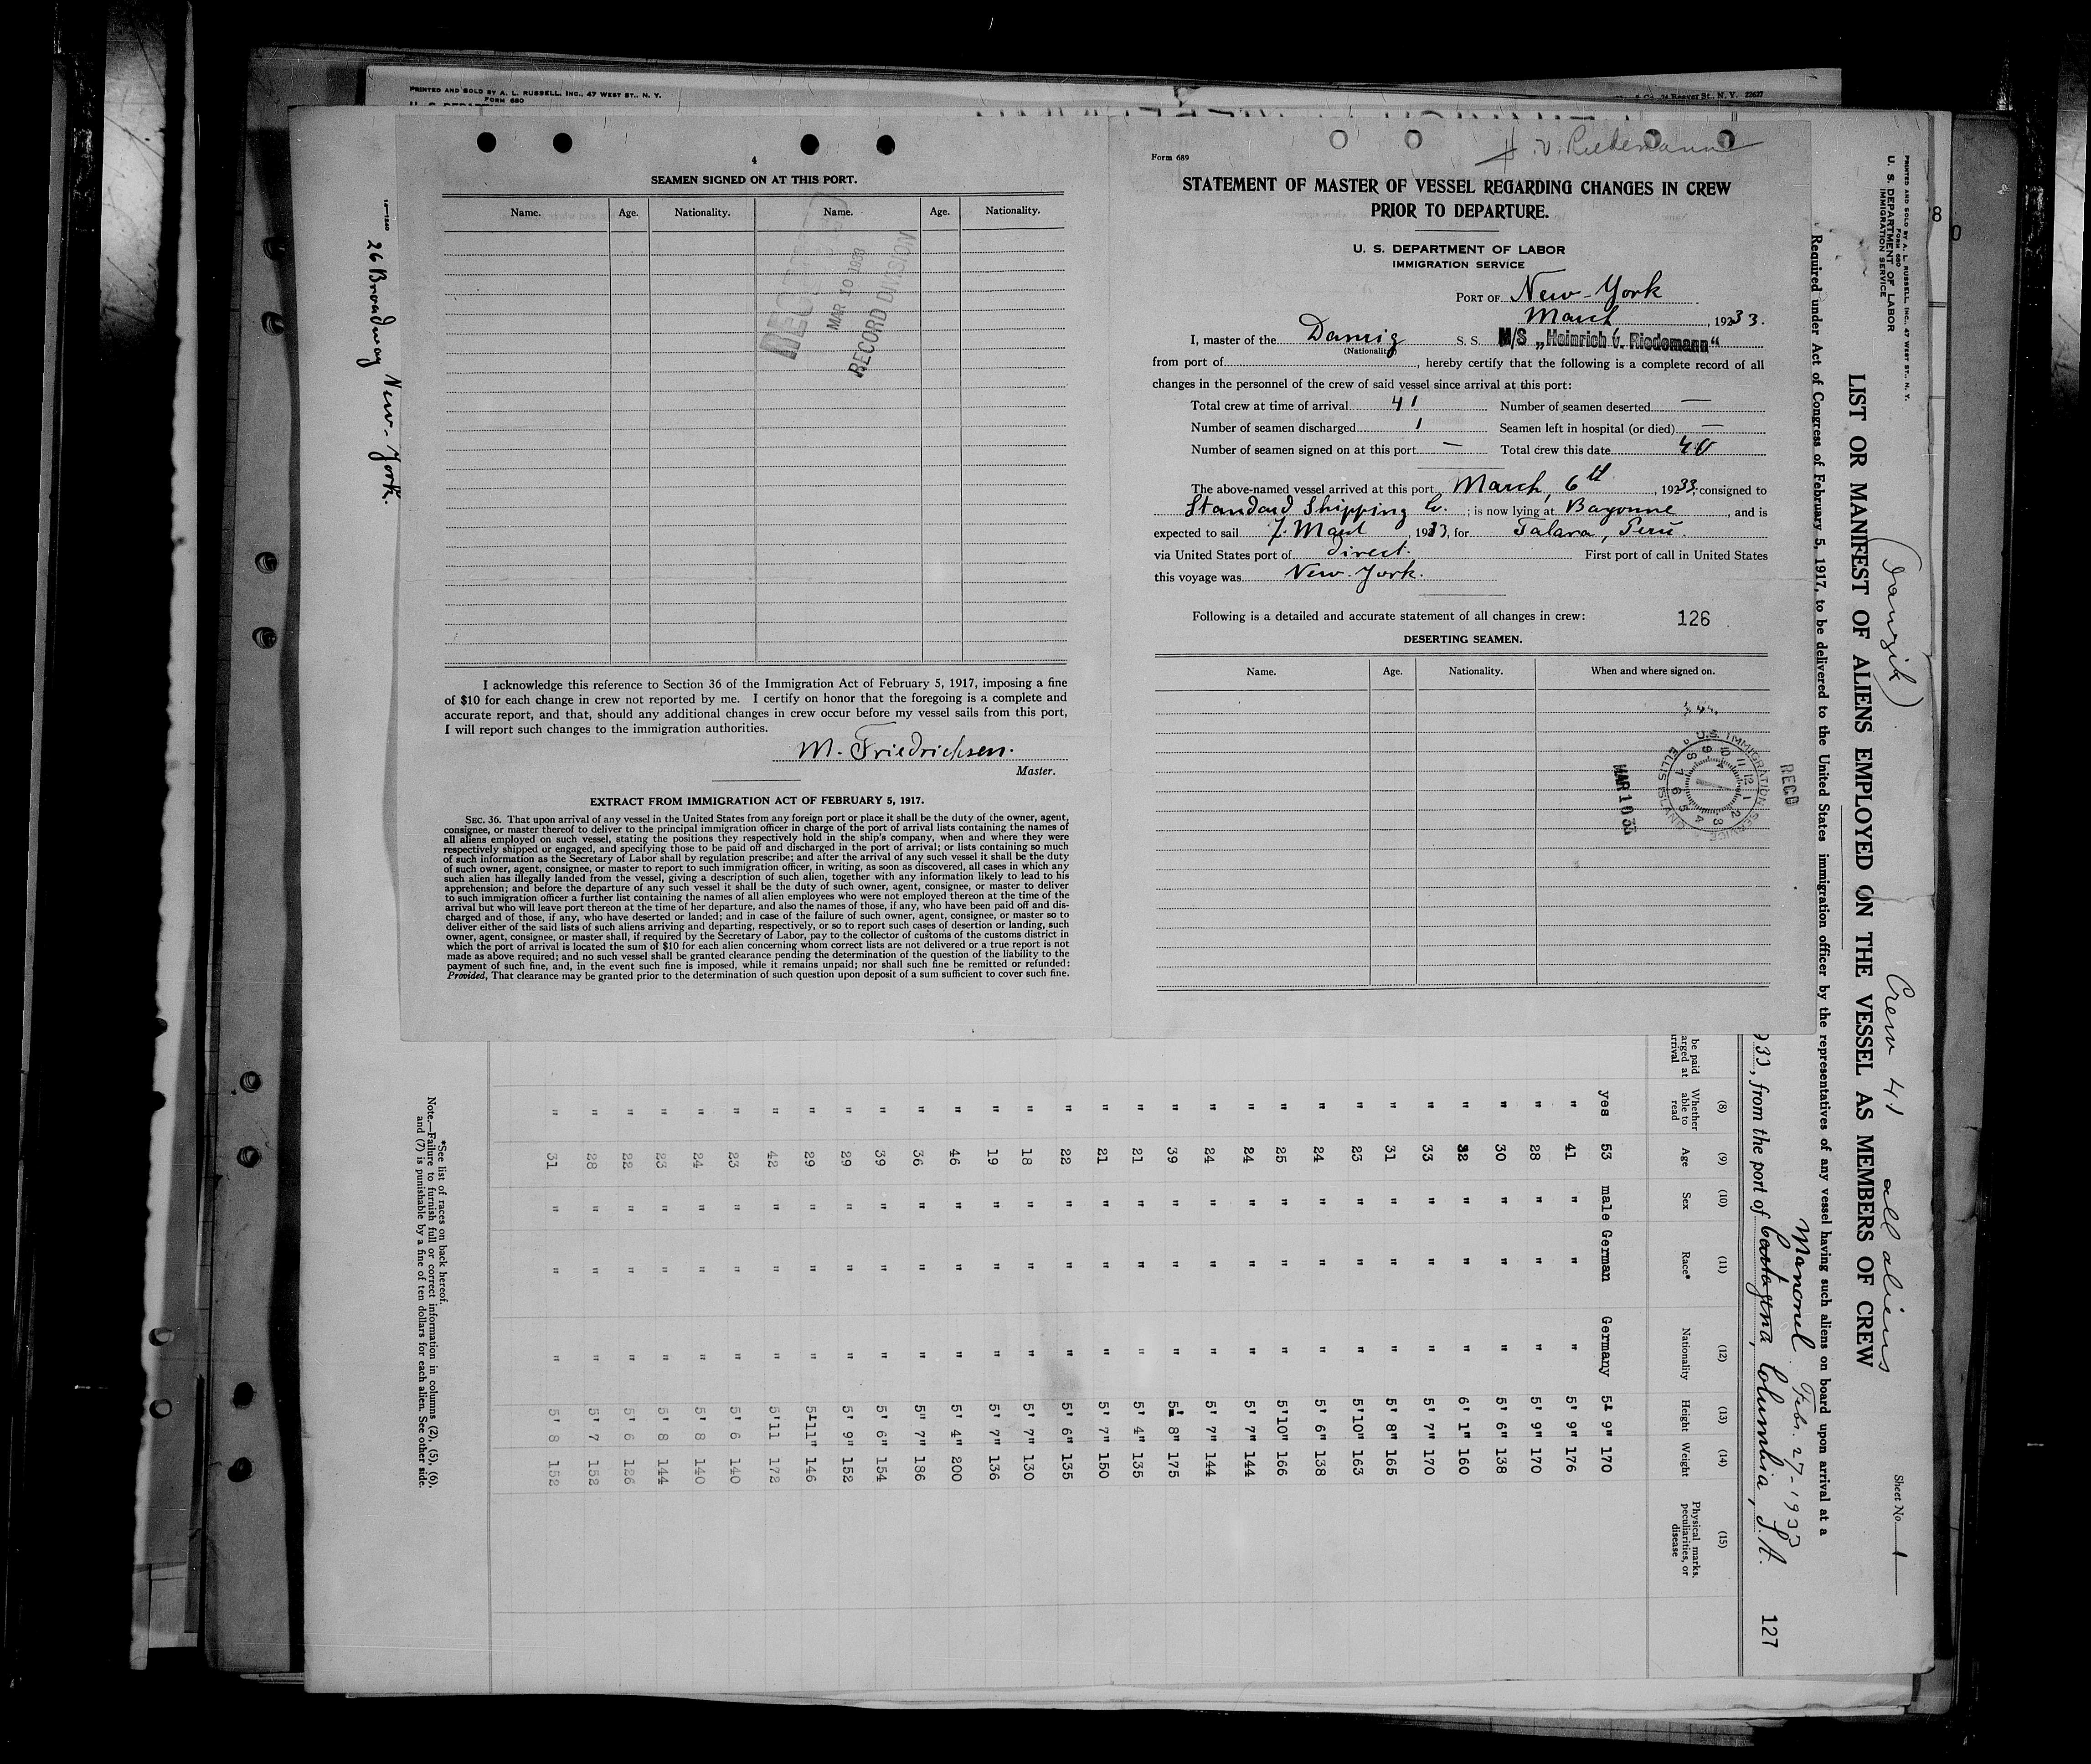 PRINTED AND SOLD BY A. L. RUSSELL, INC., 47 WEST ST., N. Y.
FORM 680
Beaver St., N. Y. 22627
4
SEAMEN SIGNED ON AT THIS PORT.
Name. Age. Nationality. Name. Age. Nationality.
MAR 10 1933
RECORD DIVISION
I acknowledge this reference to Section 36 of the Immigration Act of February 5, 1917, imposing a fine
of $10 for each change in crew not reported by me. I certify on honor that the foregoing is a complete and
accurate report, and that, should any additional changes in crew occur before my vessel sails from this port,
I will report such changes to the immigration authorities.
M. Friedrichsen.
Master.
EXTRACT FROM IMMIGRATION ACT OF FEBRUARY 5, 1917.
SEC. 36. That upon arrival of any vessel in the United States from any foreign port or place it shall be the duty of the owner, agent,
consignee, or master thereof to deliver to the principal immigration officer in charge of the port of arrival lists containing the names of
all aliens employed on such vessel, stating the positions they respectively hold in the ship's company, when and where they were
respectively shipped or engaged, and specifying those to be paid off and discharged in the port of arrival; or lists containing so much
of such information as the Secretary of Labor shall by regulation prescribe; and after the arrival of any such vessel it shall be the duty
of such owner, agent, consignee, or master to report to such immigration officer, in writing, as soon as discovered, all cases in which any
such alien has illegally landed from the vessel, giving a description of such alien, together with any information likely to lead to his
apprehension; and before the departure of any such vessel it shall be the duty of such owner, agent, consignee, or master to deliver
to such immigration officer a further list containing the names of all alien employees who were not employed thereon at the time of the
arrival but who will leave port thereon at the time of her departure, and also the names of those, if any, who have been paid off and dis-
charged and of those, if any, who have deserted or landed; and in case of the failure of such owner, agent, consignee, or master so to
deliver either of the said lists of such aliens arriving and departing, respectively, or so to report such cases of desertion or landing, such
owner, agent, consignee, or master shall, if required by the Secretary of Labor, pay to the collector of customs of the customs district in
which the port of arrival is located the sum of $10 for each alien concerning whom correct lists are not delivered or a true report is not
made as above required; and no such vessel shall be granted clearance pending the determination of the question of the liability to the
payment of such fine, and, in the event such fine is imposed, while it remains unpaid; nor shall such fine be remitted or refunded:
Provided, That clearance may be granted prior to the determination of such question upon deposit of a sum sufficient to cover such fine.
26 Broadway New-York.
H. v. Riedemann
Form 689
STATEMENT OF MASTER OF VESSEL REGARDING CHANGES IN CREW
PRIOR TO DEPARTURE.
U. S. DEPARTMENT OF LABOR
IMMIGRATION SERVICE
PORT OF New-York
March, 1933.
I, master of the Danzig S. S. M/S „Heinrich v. Riedemann“
(Nationality)
from port of, hereby certify that the following is a complete record of all
changes in the personnel of the crew of said vessel since arrival at this port:
Total crew at time of arrival 41 Number of seamen deserted —
Number of seamen discharged 1 Seamen left in hospital (or died) —
Number of seamen signed on at this port — Total crew this date 40
The above-named vessel arrived at this port March, 6th, 1933, consigned to
Standard Shipping Co.; is now lying at Bayonne, and is
expected to sail 7. March, 1933, for Talara, Peru.
via United States port of direct. First port of call in United States
this voyage was New-York.
Following is a detailed and accurate statement of all changes in crew: 126
DESERTING SEAMEN.
Name. Age. Nationality. When and where signed on.
U.S. IMMIGRATION SERVICE ELLIS ISLAND
MAR 10 33
RECD
PRINTED AND SOLD BY A. L. RUSSELL, INC., 47 WEST ST., N. Y.
FORM 680
U. S. DEPARTMENT OF LABOR
IMMIGRATION SERVICE
(Danzik) Crew 41 all aliens
Sheet No. 1
LIST OR MANIFEST OF ALIENS EMPLOYED ON THE VESSEL AS MEMBERS OF CREW
Required under Act of Congress of February 5, 1917, to be delivered to the United States immigration officer by the representatives of any vessel having such aliens on board upon arrival at a
Mamonel Febr. 27-1933
933, from the port of Cartagena, Columbia, S.A. 127
(8) (9) (10) (11) (12) (13) (14) (15)
be paid
arged at
arrival
Whether able to read Age Sex Race* Nationality Height Weight Physical marks, peculiarities, or disease
yes 53 male German Germany 5' 9" 170
" 41 " " " 5' 9" 176
" 28 " " " 5' 9" 170
" 30 " " " 5' 6" 138
" 32 " " " 6' 1" 160
" 33 " " " 5' 7" 170
" 31 " " " 5' 8" 165
" 23 " " " 5'10" 163
" 24 " " " 5' 6" 138
" 25 " " " 5'10" 166
" 24 " " " 5' 7" 144
" 24 " " " 5' 7" 144
" 39 " " " 5' 8" 175
" 21 " " " 5' 4" 135
" 21 " " " 5' 7" 150
" 22 " " " 5' 6" 135
" 18 " " " 5' 7" 130
" 19 " " " 5' 7" 136
" 46 " " " 5' 4" 200
" 36 " " " 5" 7" 186
" 39 " " " 5' 6" 154
" 29 " " " 5' 9" 152
" 29 " " " 5'11" 146
" 42 " " " 5'11 172
" 23 " " " 5' 6 140
" 24 " " " 5' 8 140
" 23 " " " 5' 8 144
" 22 " " " 5' 6 126
" 28 " " " 5' 7 152
" 31 " " " 5' 8 152
*See list of races on back hereof.
Note.—Failure to furnish full or correct information in columns (2), (5), (6),
and (7) is punishable by a fine of ten dollars for each alien. See other side.